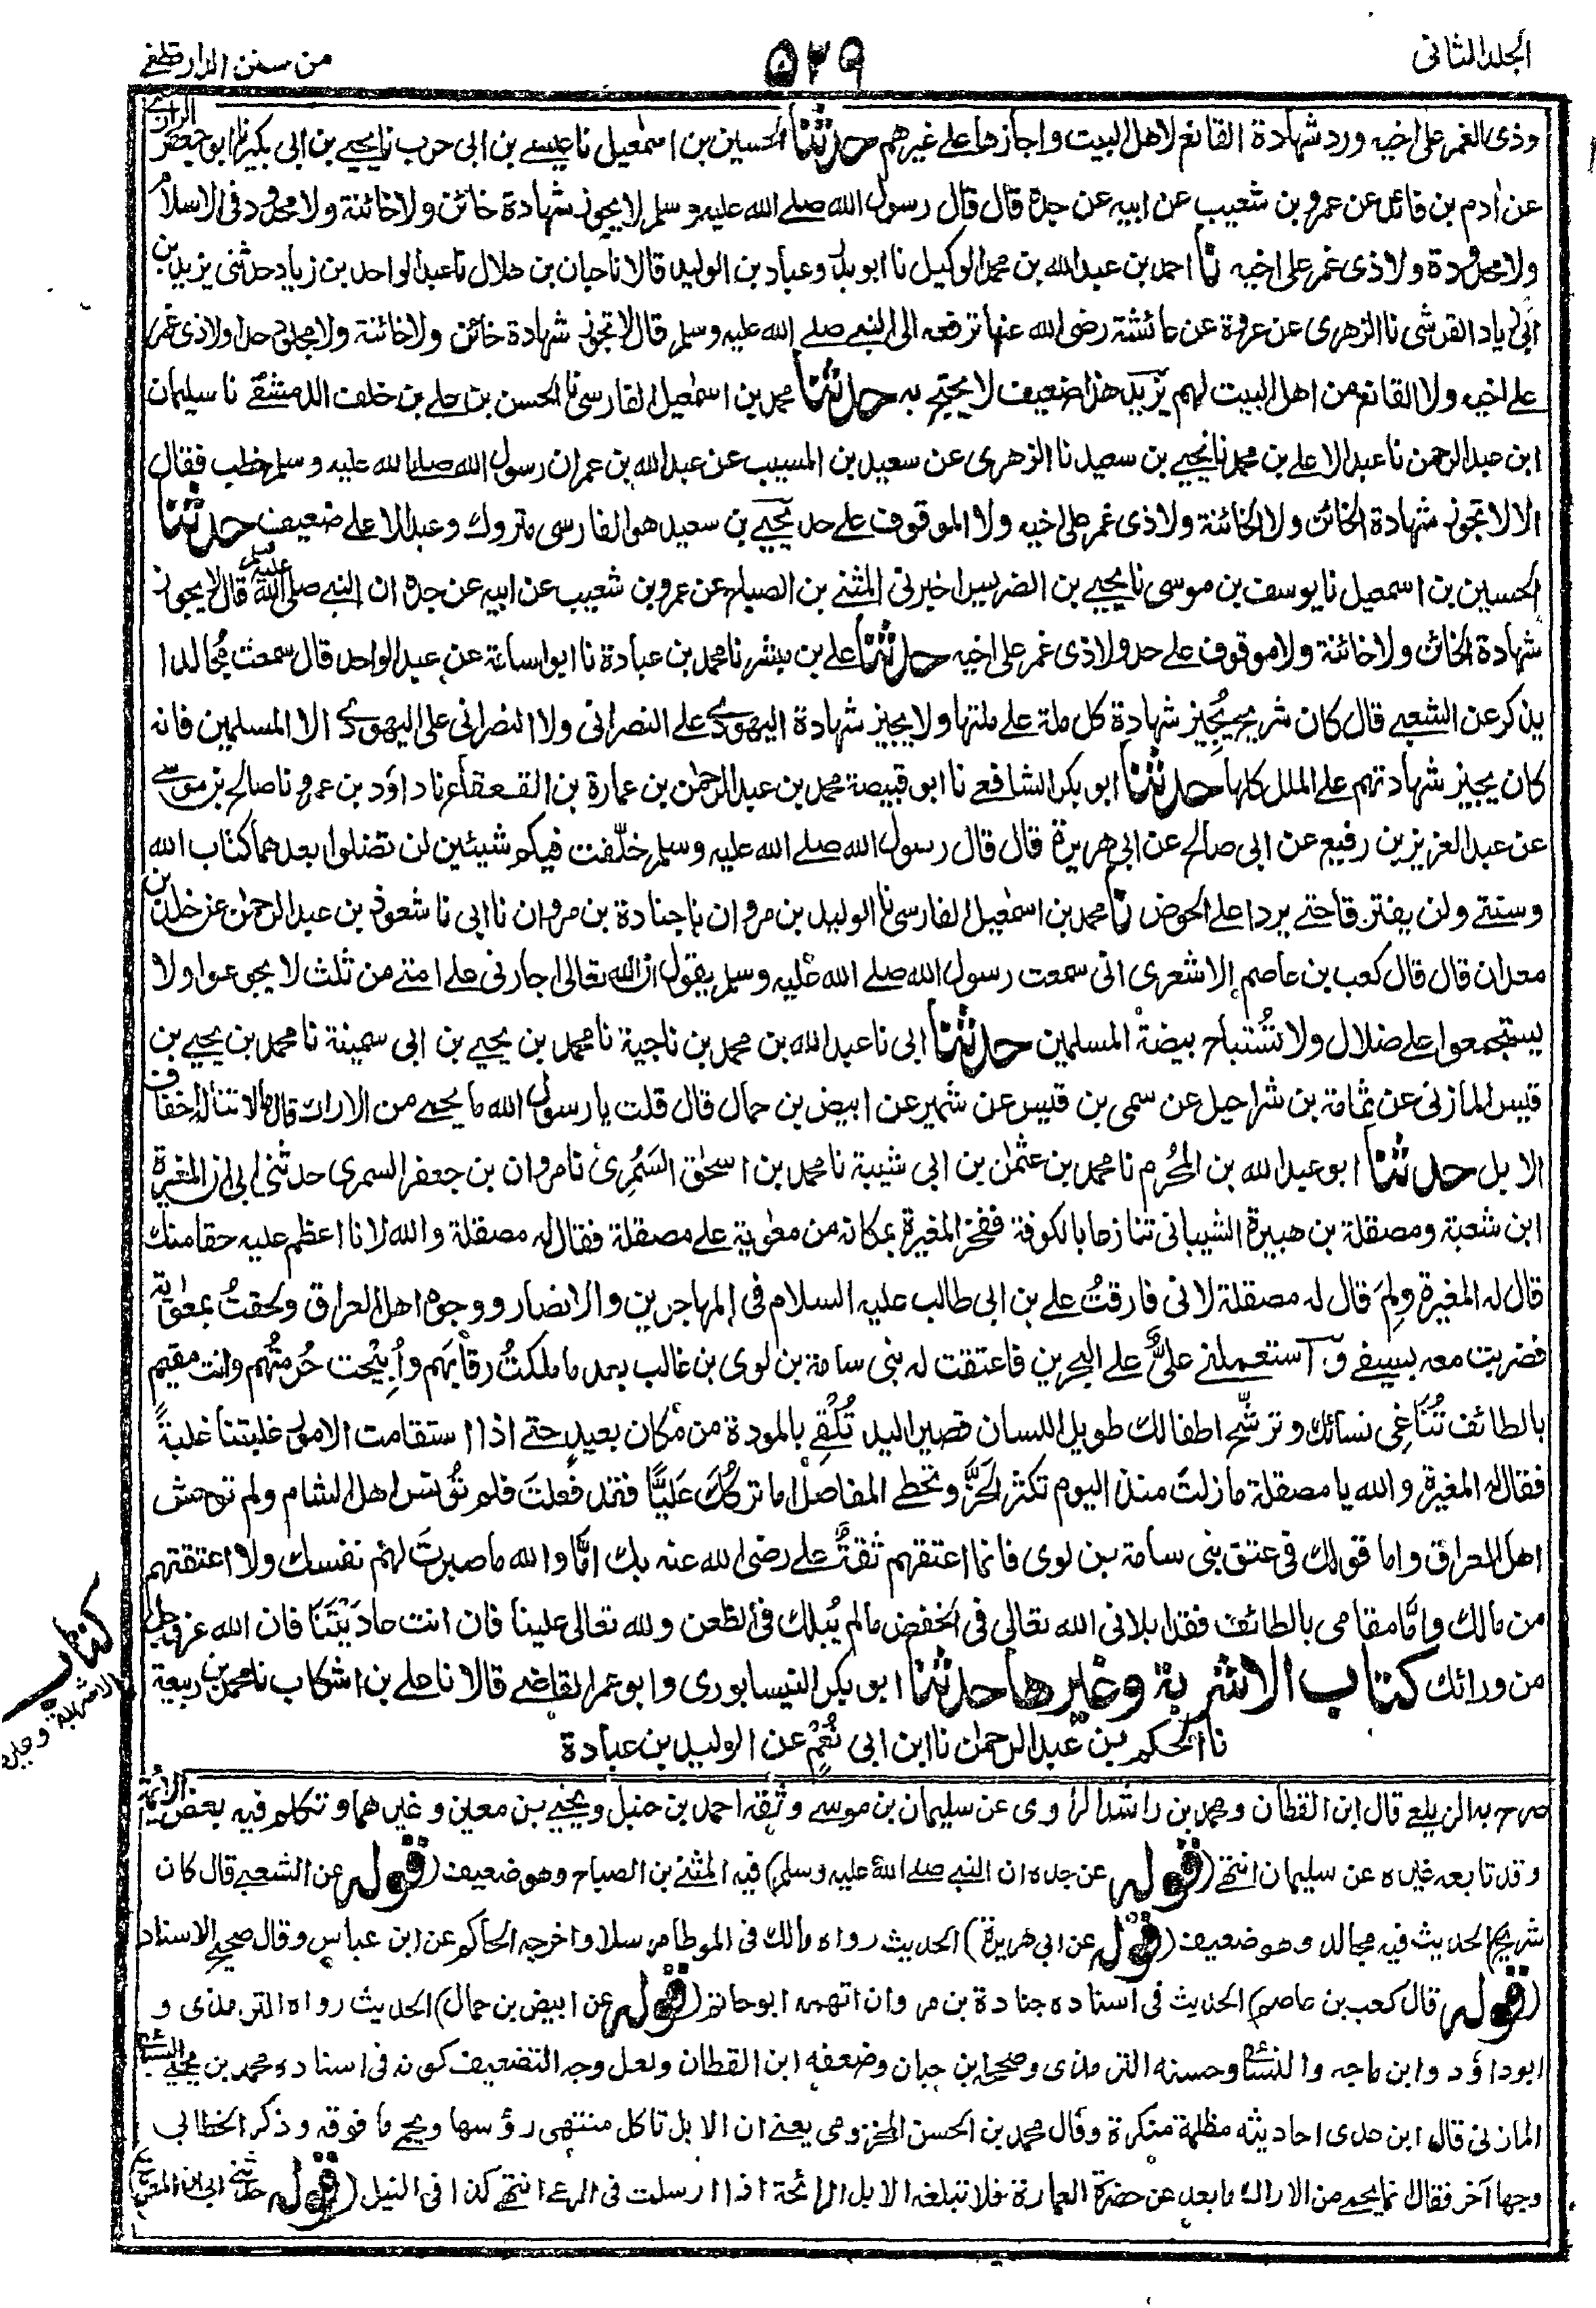 الجلد الثانى
٥٢٩
من سنن الدارقطنے
وذى الغمر على اخيه ورد شهادة القانع لاهل البيت واجازها على غيرهم حدثنا الحسين بن اسمٰعيل نا عيسے بن ابى حرب نا يحيے بن ابى بكير نا ابو جعفر الرازى
عن اٰدم بن فائد عن عمرو بن شعيب عن ابيه عن جده قال قال رسول الله صلے الله عليه وسلم لا يجوز شهادة خائن ولا خائنة ولا محدود فى الاسلام
ولا محدودة ولا ذى غمر على اخيه نا احمد بن عبد الله بن محمد الوكيل نا ابو بدر وعباد بن الوليد قالا نا حبان بن هلال نا عبد الواحد بن زياد حدثنى يزيد بن
ابى زياد القرشى نا الزهرى عن عروة عن عائشة رضى الله عنها ترفعه الى النبے صلے الله عليه وسلم قال لا تجوز شهادة خائن ولا خائنة ولا مجلود حدا ولا ذى غمر
علے اخيه ولا القانع من اهل البيت لهم يزيد هذا ضعيف لا يحتج به حدثنا محمد بن اسمٰعيل الفارسى نا الحسن بن علے بن خلف الدمشقے نا سليمان
ابن عبد الرحمن نا عبد الاعلے بن محمد نا يحيے بن سعيد نا الزهرى عن سعيد بن المسيب عن عبد الله بن عمر ان رسول الله صلے الله عليه وسلم خطب فقال
الا لا تجوز شهادة الخائن ولا الخائنة ولا ذى غمر على اخيه ولا الموقوف علے حد يحيے بن سعيد هو الفارسى متروك وعبد الاعلے ضعيف حدثنا
الحسين بن اسمعيل نا يوسف بن موسى نا يحيے بن الضريس اخبرنى المثنے بن الصباح عن عمرو بن شعيب عن ابيه عن جده ان النبے صلى الله عليه وسلم قال لا يجوز
شهادة الخائن ولا خائنة ولا موقوف علے حد ولا ذى غمر على اخيه حدثنا علے بن مبشر نا محمد بن عبادة نا ابو اسامة عن عبد الواحد قال سمعت مُجالدا
يذكر عن الشعبے قال كان شريح يُجِيز شهادة كل ملة علے ملتها ولا يجيز شهادة اليهودے علے النصرانى ولا النصرانى على اليهودے الا المسلمين فانه
كان يجيز شهادتهم علے الملل كلها حدثنا ابو بكر الشافعے نا ابو قبيصة محمد بن عبد الرحمٰن بن عمارة بن القعقاع نا داؤد بن عمرو نا صالح بن موسے
عن عبد العزيز بن رفيع عن ابى صالح عن ابى هريرة قال قال رسول الله صلے الله عليه وسلم خلّفت فيكم شيئين لن تضلوا بعدهما كتاب الله
وسنتے ولن يفترقا حتے يردا علے الحوض نا محمد بن اسمٰعيل الفارسى نا الوليد بن مروان نا جنادة بن مروان نا ابى نا شعوذ بن عبد الرحمٰن عن خالد بن
معدان قال قال كعب بن عاصم الاشعرى انى سمعت رسول الله صلے الله عليه وسلم يقول ان الله تعالى اجارنى علے امتے من ثلث لا يجوعوا ولا
يستجمعوا علے ضلال ولا تُستباح بيضة المسلمين حدثنا ابى نا عبد الله بن محمد بن ناجية نا محمد بن يحيے بن ابى سمينة نا محمد بن يحيے بن
قيس المازنى عن ثمامة بن شراحيل عن سمى بن قيس عن شمير عن ابيض بن حمال قال قلت يا رسول الله ما يحمے من الاراك قال ما لا تناله اخفاف
الابل حدثنا ابو عبد الله بن المحُرم نا محمد بن عثمٰن بن ابى شيبة نا محمد بن اسحٰق السَمُرِى نا مروان بن جعفر السمرى حدثنى ابى ان المغيرة
ابن شعبة ومصقلة بن هبيرة الشيبانى تنازعا بالكوفة ففخر المغيرة بمكانه من معٰوية علے مصقلة فقال له مصقلة والله لانا اعظم عليه حقا منك
قال له المغيرة ولِمَ قال له مصقلة لانى فارقتُ علے بن ابى طالب عليه السلام فى المهاجرين والانصار ووجوه اهل العراق ولحقتُ بمعٰوية
فضربت معه بسيفے واستعملنے علىٌّ علے البحرين فاعتقت له بنى سامة بن لوى بن غالب بعد ما ملكتُ رقابهم واُبِيْحت حُرمتُهم وانت مقيم
بالطائف تُنَاغِى نسائك وترشّح اطفالك طويل اللسان قصير اليد تُلْقِے بالمودة من مكان بعيد حتے اذا استقامت الامور غلبتنا غلبةً
فقال له المغيرة والله يا مصقلة ما زلتَ منذ اليوم تكثر الحَزَّ وتخطے المفاصل اما تركُكَ عَليًّا فقد فعلتَ فلم تُؤنس اهل الشام ولم توحش
اهل العراق واما قولك فى عتق بنى سامة بن لوى فانما اعتقهم ثقةُ علے رضى الله عنه بك امَّا والله ما صبرتَ لهم نفسك ولا اعتقتهم
من مالك وامَّا مقامى بالطائف فقد ابلانى الله تعالى فى الخفض ما لم يُبلك فى الظعن ولله تعالى علينا فان انت عاديْتَنَا فان الله عز وجل
من ورائك كتاب الاشربة وغيرها حدثنا ابو بكر النيسابورى وابو عمر القاضے قالا نا علے بن اشكاب نا محمد بن ربيعة
نا الحكم بن عبد الرحمٰن نا ابن ابى نُعْمٍ عن الوليد بن عبادة
كتاب
الاشربة و
صرح به الزيلعے قال ابن القطان ومحمد بن راشد الراوى عن سليمان بن موسے وثقه احمد بن حنبل ويحيے بن معين وغيرهما وتكلم فيه بعض الائمة
وقد تابعه غيره عن سليمان انتهے (قوله عن جده ان النبے صلے الله عليه وسلم) فيه المثنے بن الصباح وهو ضعيف (قوله عن الشعبے قال كان
شريح) الحديث فيه مجالد وهو ضعيف (قوله عن ابى هريرة) الحديث رواه مالك فى الموطا مرسلا واخرجه الحاكم عن ابن عباس وقال صحيح الاسناد
(قوله قال كعب بن عاصم) الحديث فى اسناده جنادة بن مروان اتهمه ابو حاتم (قوله عن ابيض بن حمال) الحديث رواه الترمذى و
ابو داؤد وابن ماجه والنسائى وحسنه الترمذى وصححه ابن حبان وضعفه ابن القطان ولعل وجه التضعيف كونه فى اسناده محمد بن يحيے السبائى
المازنى قال ابن عدى احاديثه مظلمة منكرة وقال محمد بن الحسن المخزومى يعنے ان الابل تاكل منتهى رؤسها ويحمے ما فوقه وذكر الخطابى
وجها آخر فقال انما يحمے من الاراك ما بعد عن حضرة العمارة فلا تبلغه الابل الرائحة اذا ارسلت فى الرعے انتهے كذا فى النيل (قوله حدثنے ابى ان المغيرة)